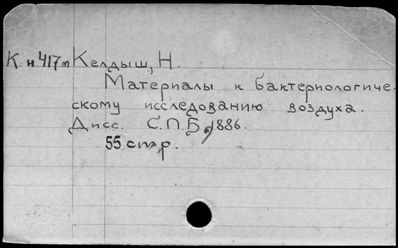 К н417m Келдыш, Н.
Материалы к бактериологиче-
скому исследованию воздуха.
Дисс. С.П.Б, 1886.
55 стр.